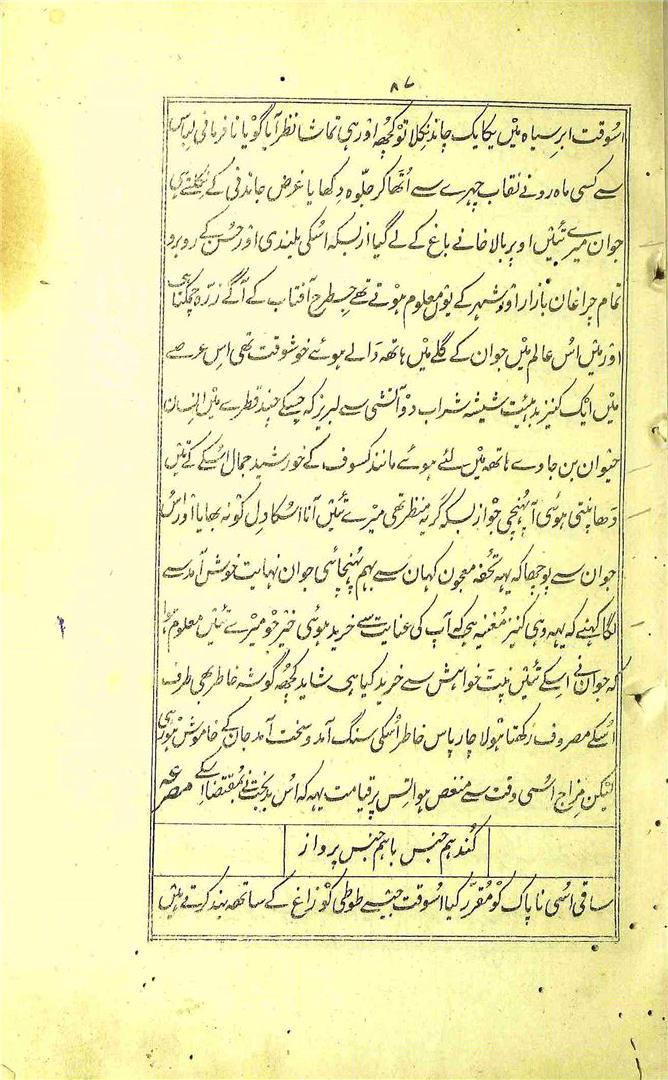 ۸۷
اسُوقت ابرِ سیاہ میْں یکایک چاند نِکلا تو کچُھہ اوْر ہی تماشا نظر آیا گویا نافرمانی لِباس
سے کسی ماہ رو نے نقاب چہرے سے اُٹھا کر جلّوہ دِکھایا غرض چاندنی کے نِکلتے ہی
جوان میرے تئیں اوپر بالا خانے باغ کے لے گیا ازبسکہ اُسکی بلندی اوْر حسُن کے روبرو
تمام چراغان بازار اوْر شہر کے یوْں معلوم ہوْتے تھے جِس طرح آفتاب کے آگے زرّہ چمکتا ہی
اوْر میْں اُس عالم میْں جوان کے گلے میْں ہاتھہ ڈالے ہوئے خوشوقت تھی اس عرصے
میْں ایْک کنیز بد ہیئت شیشہ شراب دوْ آتشی سے لبریز کہ جِسکے چند قطرے میْں اِنسان
حیْوان بن جاوے ہاتھہ میْں لئے ہوئے مانند کسوف کے خورشید جمال اُسکے کے تئیْں
ڈھاپنتی ہوئی آ پہُنچی جوْ ازبسکہ کریہ منظر تھی میرے تئیْں آنا اُسکا دِل کوْ نہ بھایا اوْر اُس
جوان سے پوچھا کہ یہہ تحُفہ معجون کہان سے بہم پہُنچائی جوان نہایت خوش آمد سے
لگا کہنے کہ یہہ وہی کنیز مُغنیہ ہی کہ آپ کی عنایت سے خرید ہوئی خیْر جوْ میرے تئیْں معلوم ہوا
کہ جوان نے اِسکے تئیْں نپٹ خواہش سے خرید کیا ہی شاید کچُھہ گوشہ خاطر بھی طرف
اُسکے مصروف رکھتا ہوْ لاچار پاس خاطر اُسکی سنگ آمد و سخت آمد جان کے خاموش ہوْ رہی
لیکن مِزاج اُسی وقت سے منغص ہوا تِس پر قیامت یہہ کہ اُس بدبخت نے بمُقتضا اِسکے مصرعہ
کُند ہم جنس با ہم جنس پرواز
ساقی اُسی ناپاک کوْ مُقرّر کیا اُسوقت جیْسے طوطی کوْ زاغ کے ساتھہ بند کرتے ہیْں